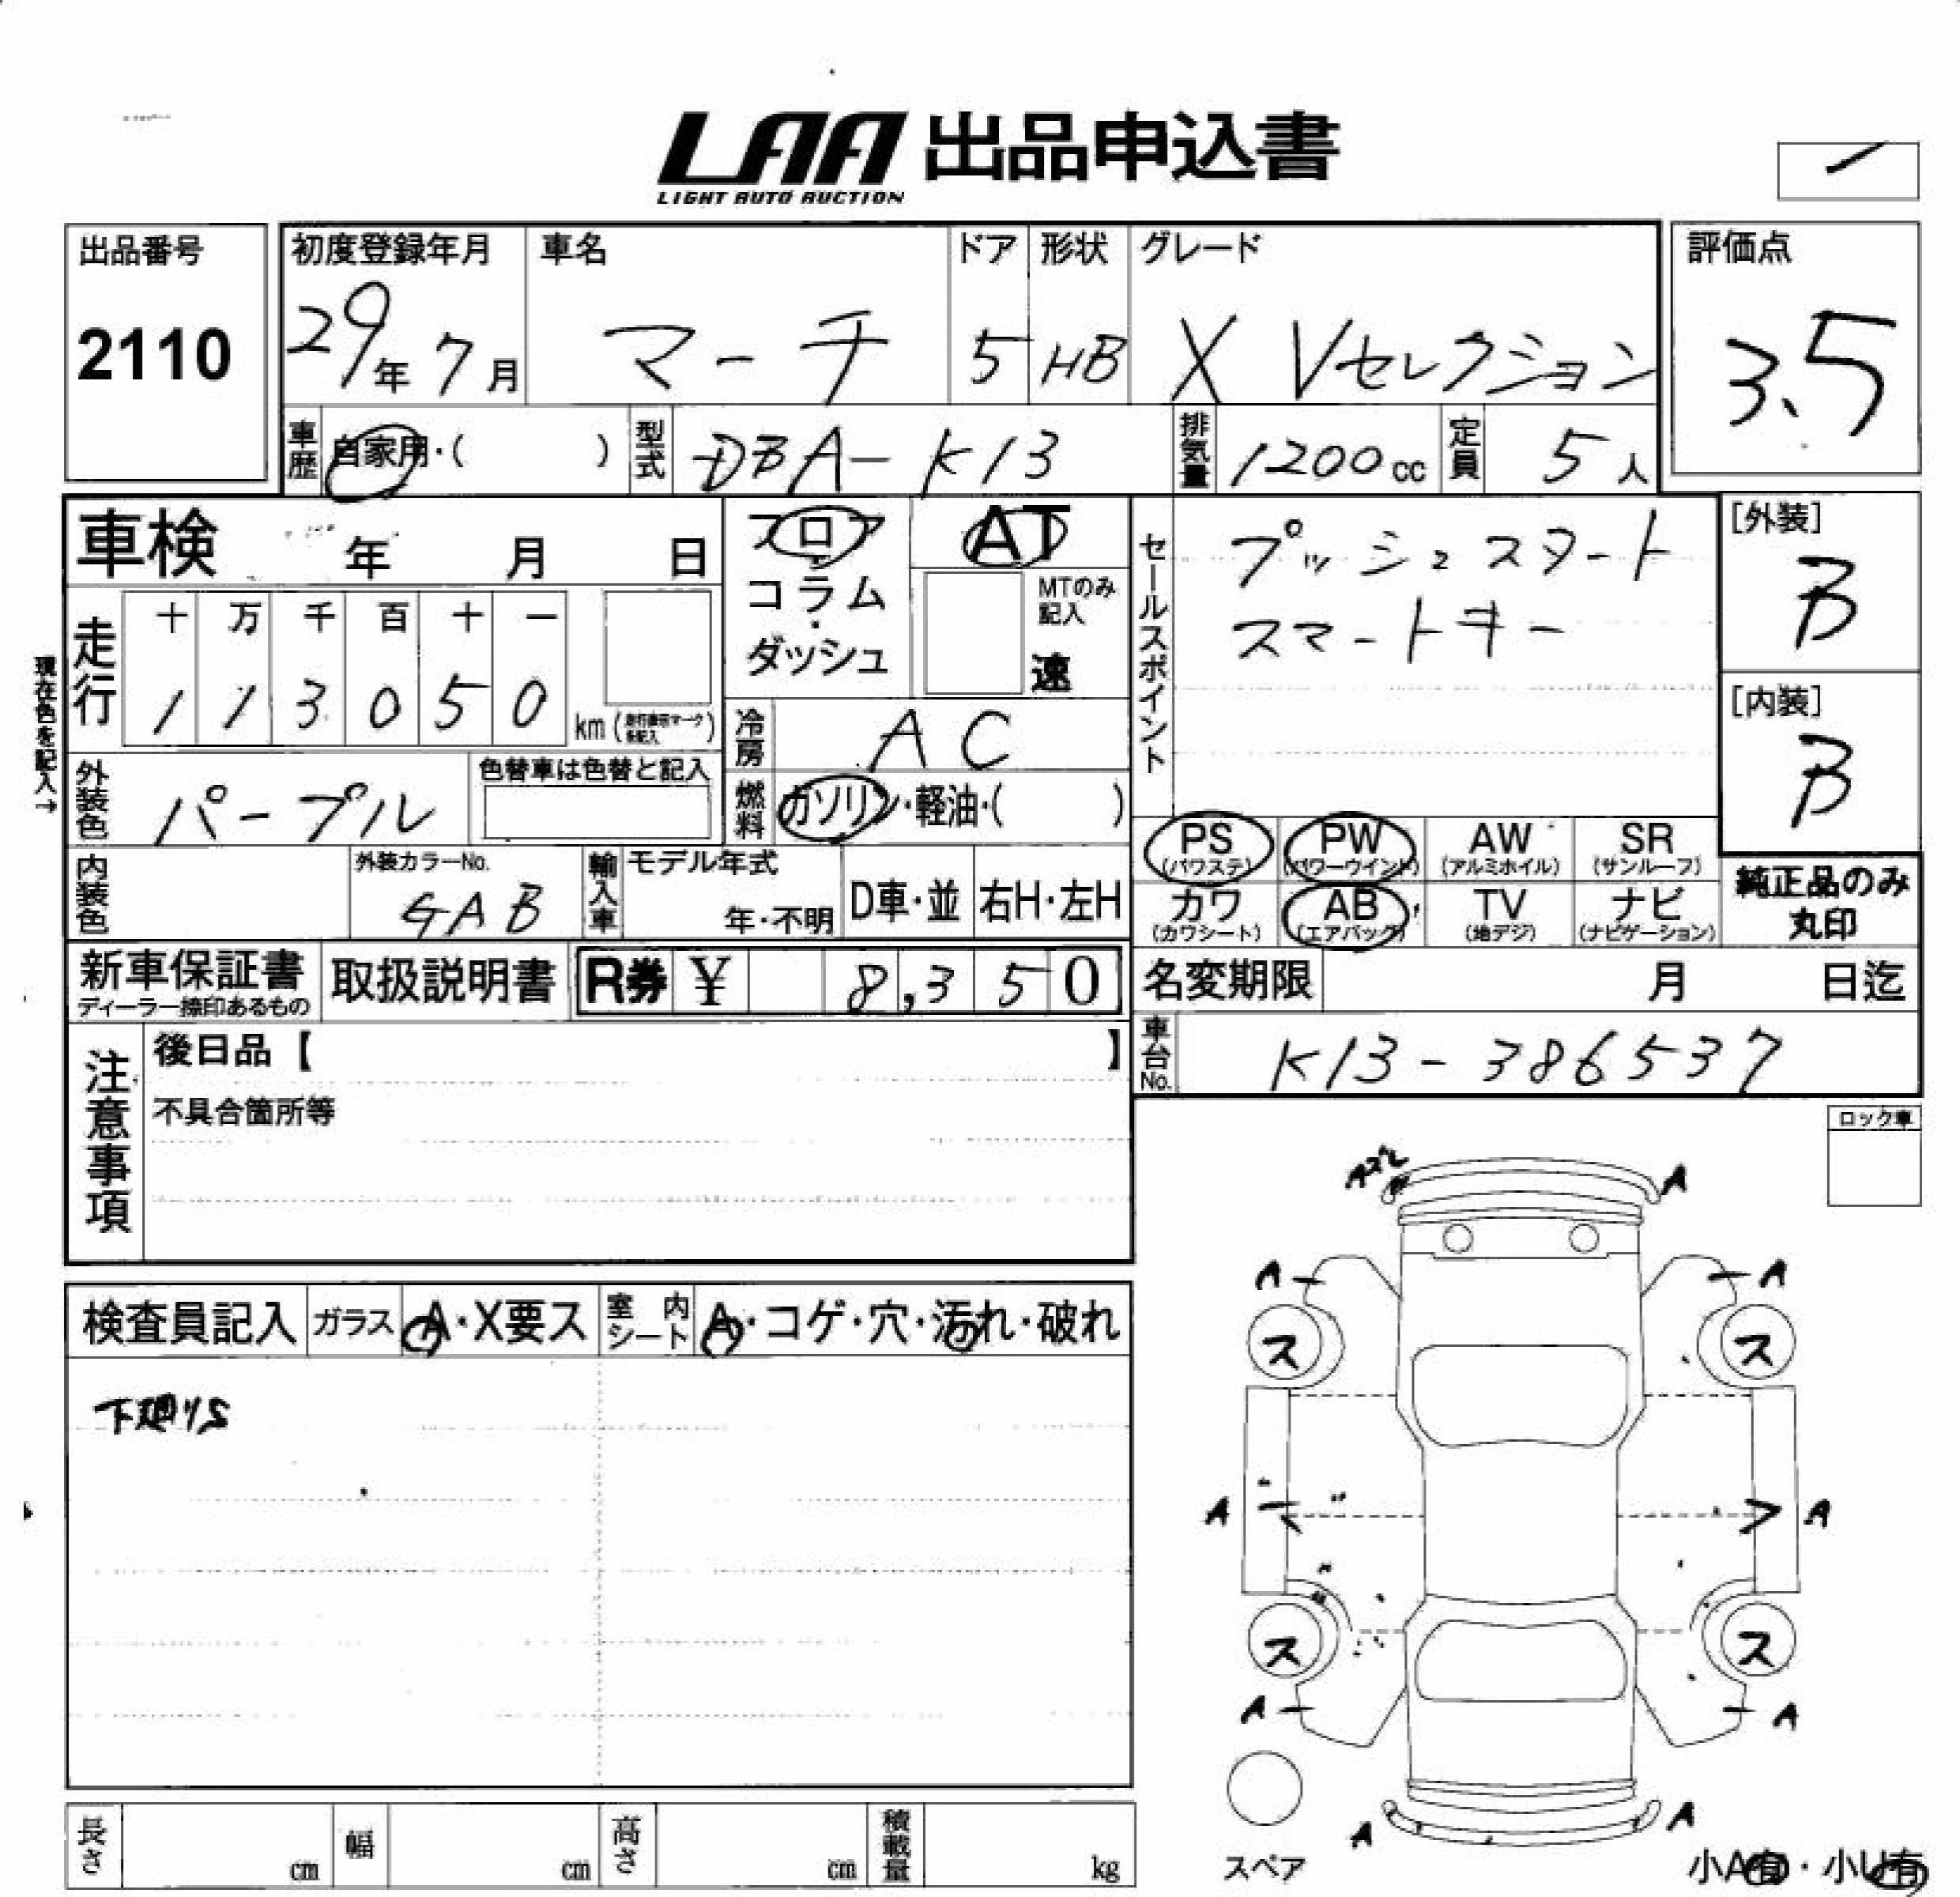 LAA 出品申込書
LIGHT AUTO AUCTION
出品番号
2110
初度登録年月
29年 7月
車名
マーチ
ドア
5
形状
HB
グレード
X Vセレクション
評価点
3.5
車歴 自家用・( )
型式 DBA-K13
排気量 1200cc
定員 5人
車検 年 月 日
現在色を記入→
走行
十 万 千 百 十 一
1 1 3 0 5 0 km
フロア
コラム
ダッシュ
AT
MTのみ記入
速
冷房 AC
燃料 ガソリン・軽油・( )
セールスポイント
プッシュスタート
スマートキー
[外装]
B
[内装]
B
外装色 パープル
色替車は色替と記入
内装色
外装カラーNo.
GAB
輸入車
モデル年式
年・不明
D車・並
右H・左H
PS (パワステ)
PW (パワーウインド)
AW (アルミホイル)
SR (サンルーフ)
カワ (カワシート)
AB (エアバック)
TV (地デジ)
ナビ (ナビゲーション)
純正品のみ
丸印
新車保証書
ディーラー捺印あるもの
取扱説明書
R券 ¥ 8,350
名変期限 月 日迄
車台No. K13-386537
注意事項
後日品【 】
不具合箇所等
ロック車
検査員記入
ガラス A・X要ス
室内シート A・コゲ・穴・汚れ・破れ
下廻りS
Aズレ
A
A
A
ス
ス
A
A
ス
ス
A
A
A
A
スペア
小A有・小U有
長さ cm
幅 cm
高さ cm
積載量 kg